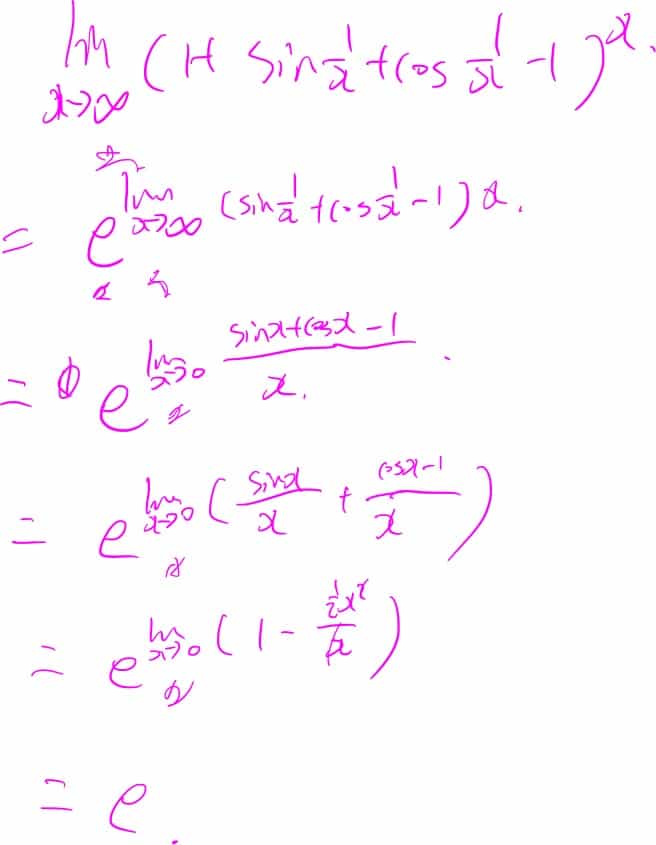 lim x→∞ (1+ sin 1/x + cos 1/x - 1)^x.
= e^{lim x→∞ (sin 1/x + cos 1/x - 1) x.}
= e^{lim x→0 (sinx+cosx-1)/x.}
= e^{lim x→0 (sinx/x + (cosx-1)/x)}
= e^{lim x→0 (1 - (1/2 x²)/x)}
= e.